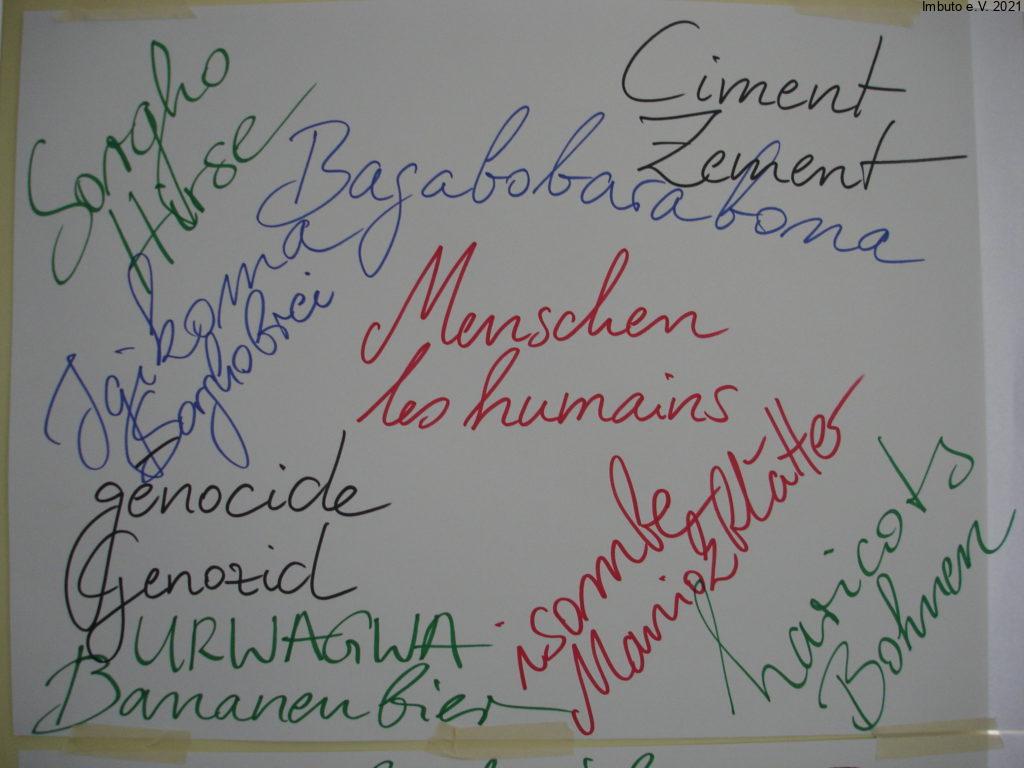 Imbuto e.V. 2021
Sorgho
Hirse
Ciment
Zement
Bagabobarabona
Igikoma
Sorghobrei
Menschen
les humains
génocide
Genozid
URWAGWA
Bananenbier
isombe
Maniokblätter
haricots
Bohnen